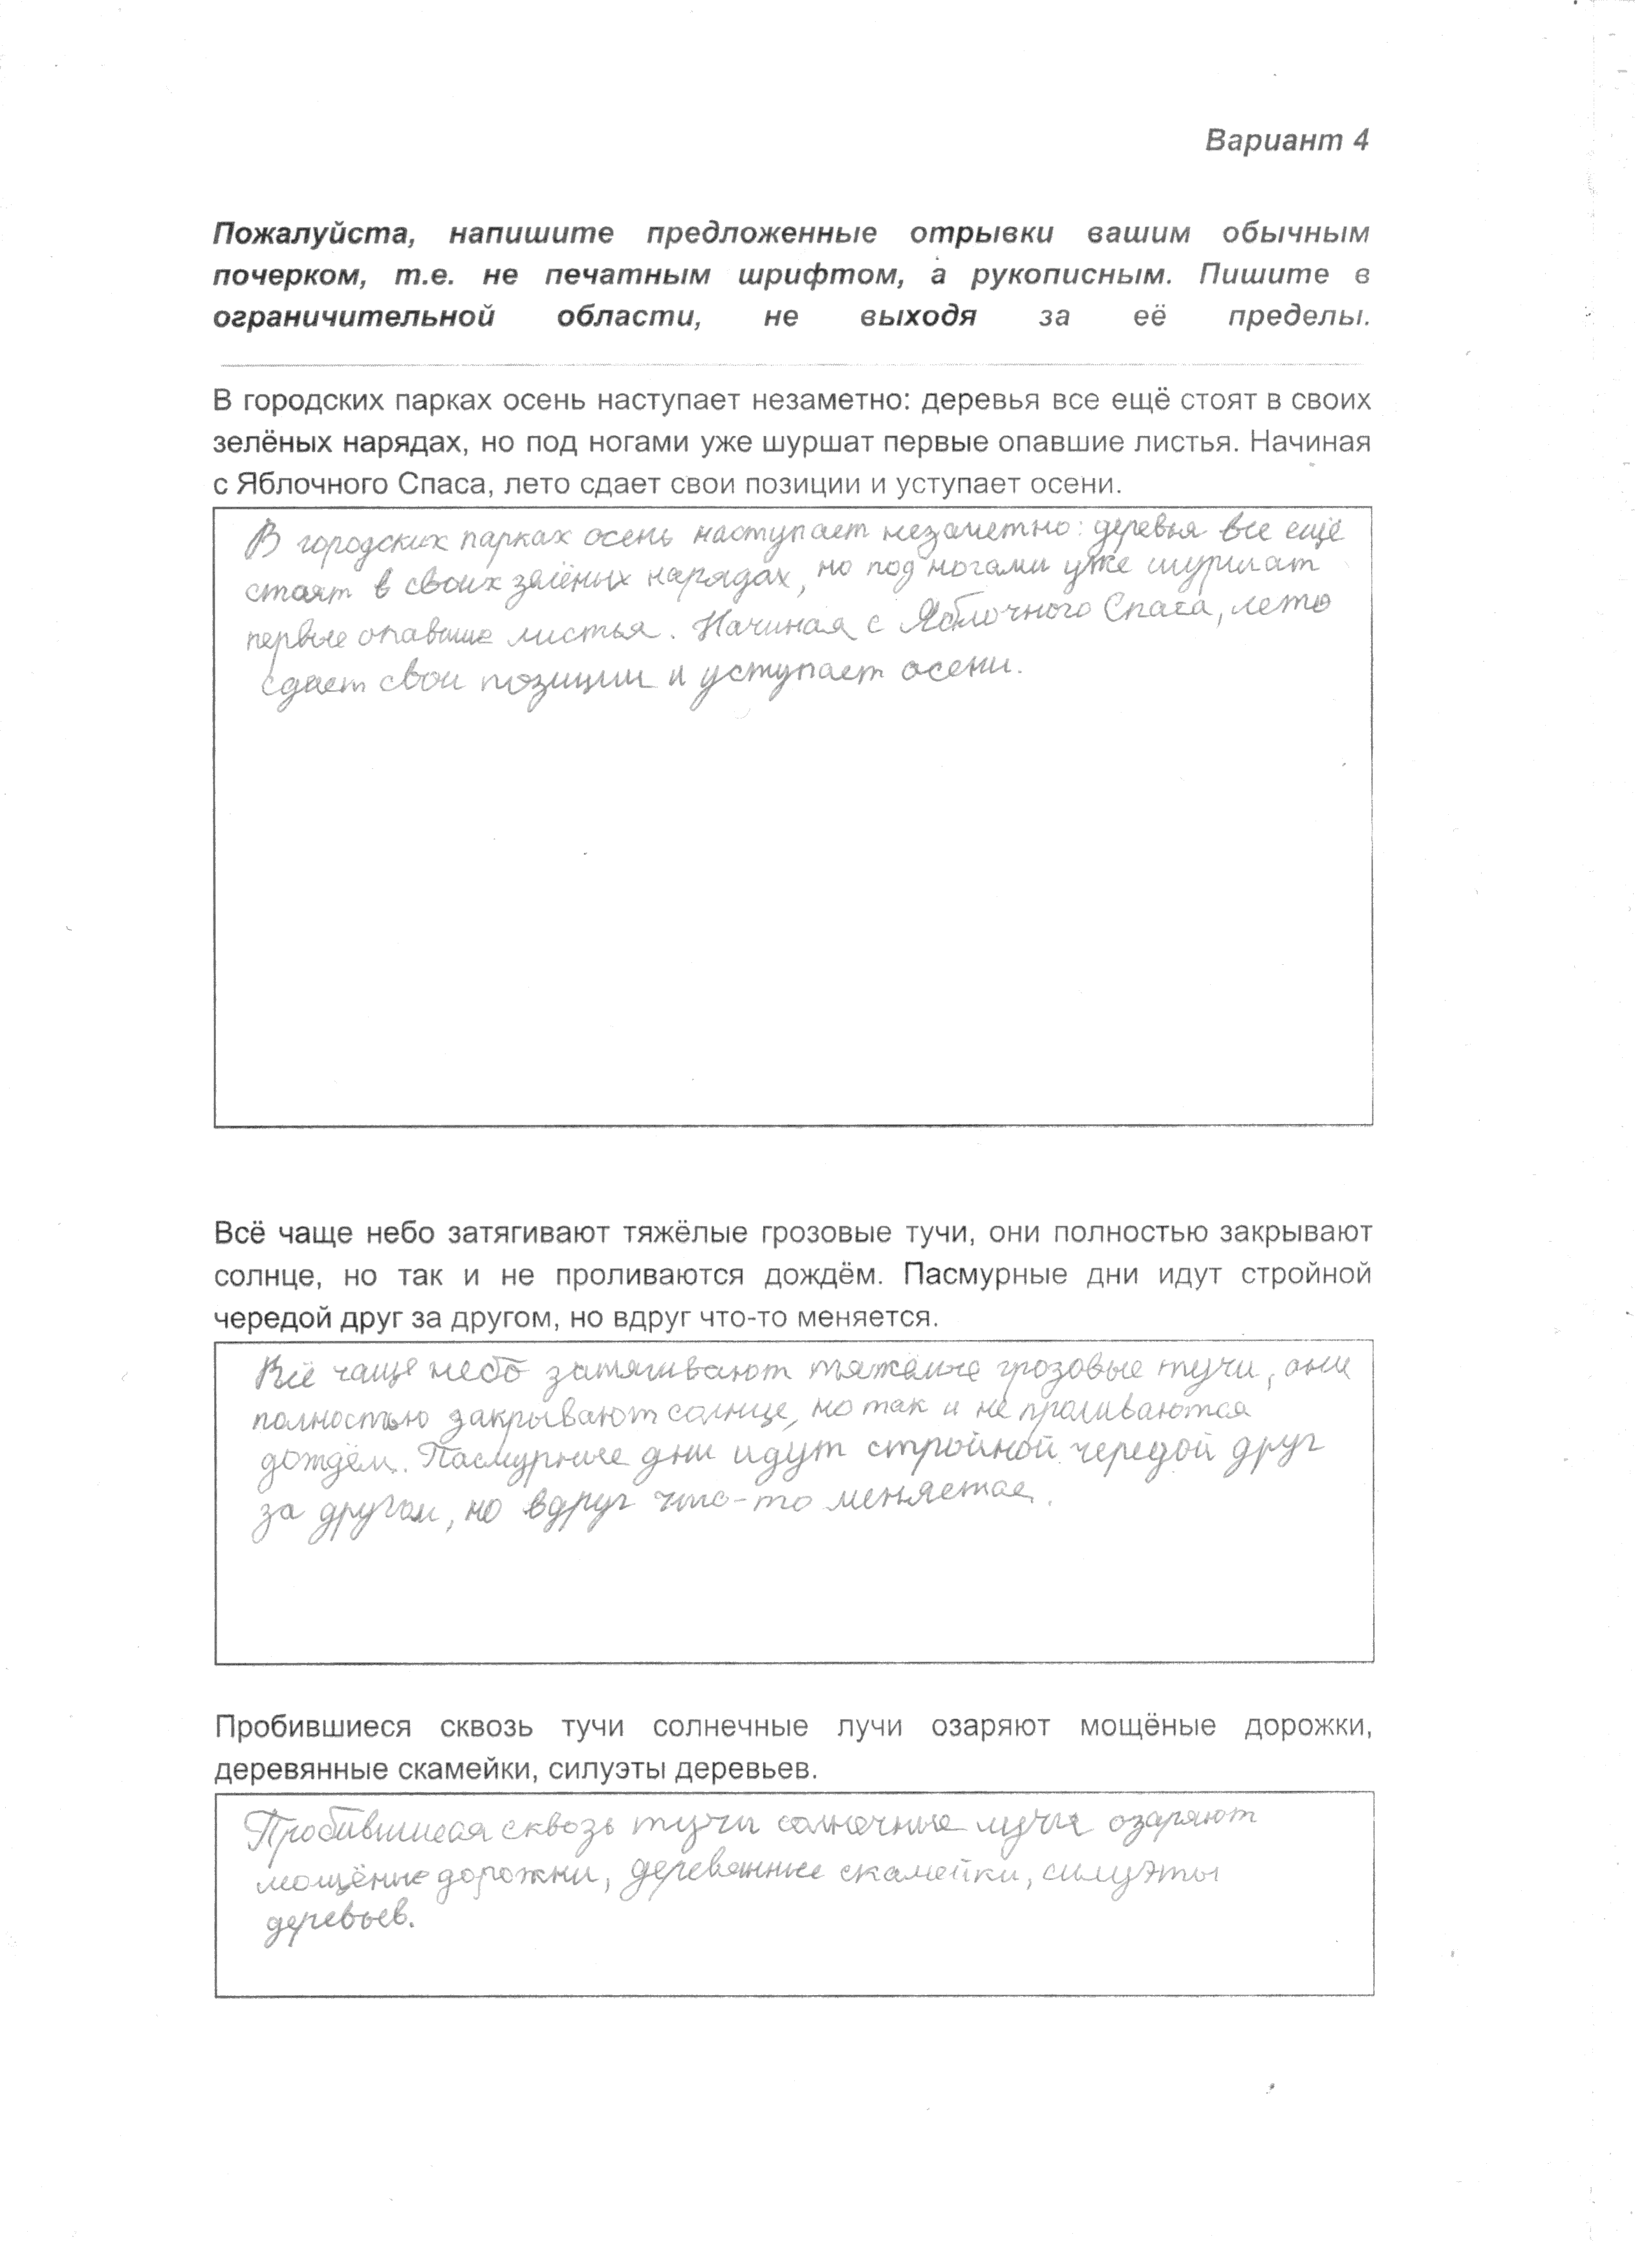 Вариант 4
Пожалуйста, напишите предложенные отрывки вашим обычным
почерком, т.е. не печатным шрифтом, а рукописным. Пишите в
ограничительной области, не выходя за её пределы.
В городских парках осень наступает незаметно: деревья все ещё стоят в своих
зелёных нарядах, но под ногами уже шуршат первые опавшие листья. Начиная
с Яблочного Спаса, лето сдает свои позиции и уступает осени.
В городских парках осень наступает незаметно: деревья все ещё
стоят в своих зелёных нарядах, но под ногами уже шуршат
первые опавшие листья. Начиная с Яблочного Спаса, лето
сдает свои позиции и уступает осени.
Всё чаще небо затягивают тяжёлые грозовые тучи, они полностью закрывают
солнце, но так и не проливаются дождём. Пасмурные дни идут стройной
чередой друг за другом, но вдруг что-то меняется.
Всё чаще небо затягивают тяжёлые грозовые тучи, они
полностью закрывают солнце, но так и не проливаются
дождём. Пасмурные дни идут стройной чередой друг
за другом, но вдруг что-то меняется.
Пробившиеся сквозь тучи солнечные лучи озаряют мощёные дорожки,
деревянные скамейки, силуэты деревьев.
Пробившиеся сквозь тучи солнечные лучи озаряют
мощёные дорожки, деревянные скамейки, силуэты
деревьев.